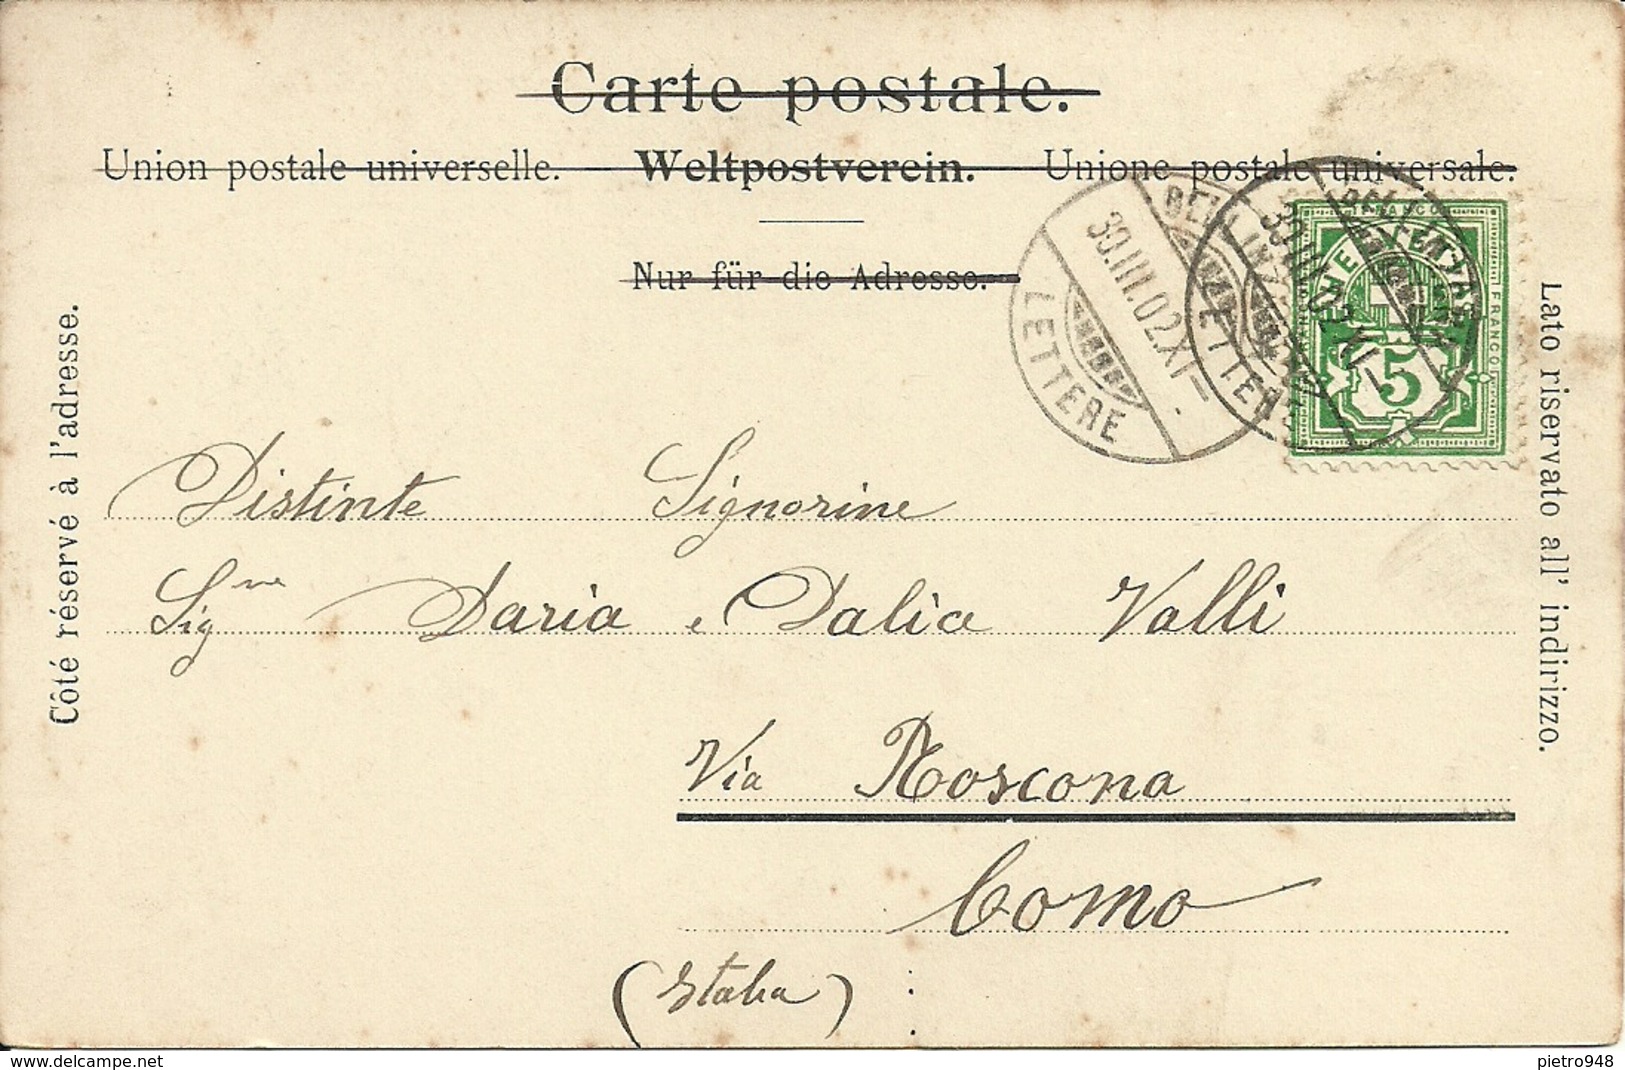 Carte postale.
Union postale universelle. Weltpostverein. Unione postale universale.
Nur für die Adresse.
Côté réservé à l'adresse.
Lato riservato all' indirizzo.
BELLINZONA
30.III.02.XI–
LETTERE
BELLINZONA
30.III.02.XI–
LETTERE
FRANCO
HELVETIA
FRANCO
5
Distinte Signorine
Sig.ne Daria e Dalia Valli
Via Roscona
Como
(Italia)
https://www.delcampe.net
pietro948